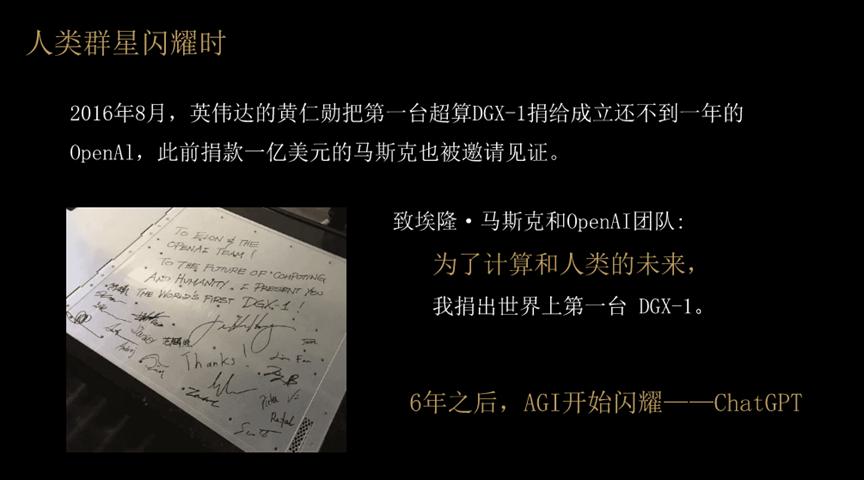 人类群星闪耀时
2016年8月，英伟达的黄仁勋把第一台超算DGX-1捐给成立还不到一年的
OpenAl，此前捐款一亿美元的马斯克也被邀请见证。
致埃隆·马斯克和OpenAI团队:
为了计算和人类的未来，
我捐出世界上第一台 DGX-1。
TO ELON & THE
OPENAI TEAM !
TO THE FUTURE OF COMPUTING
AND HUMANITY. I PRESENT YOU
THE WORLD'S FIRST DGX-1 !
Thanks!
6年之后，AGI开始闪耀——ChatGPT